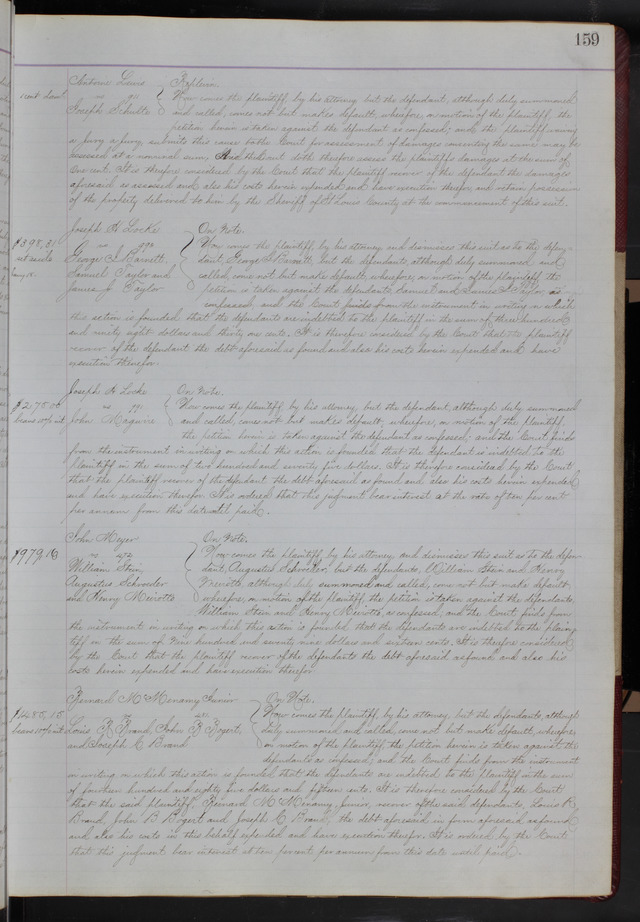 159
Antoine Lewis } Replevin.
Joseph Schulte } Now comes the plaintiff, by his attorney but the defendant, although duly summoned
and called, comes not but makes default, wherefore, on motion of the plaintiff, the
petition herein is taken against the defendant as confessed; and the plaintiff waiving
a jury, submits this cause to the Court for assessment of damages concerning the same may be
assessed at a nominal sum, And the Court doth therefore assess the plaintiffs damages at the sum of
One cent. It is therefore considered by the Court that the plaintiff recover of the defendant the damages
aforesaid as assessed and also his costs herein expended and have execution therefor and retain possession
of the property delivered to him by the Sheriff of St Louis County at the commencement of this suit.
Joseph H Locke } On Note.
$398,31
George I. Barnett } Now comes the plaintiff, by his attorney and dismisses this suit as to the defen-
Samuel Taylor and } dant, George I. Barnett, but the defendants, although duly summoned and
James J Taylor } called, come not but make default; wherefore, on motion of the plaintiff, the
petition is taken against the defendants, Samuel and James J Taylor as
confessed, and the Court finds from the instrument in writing on which
this action is founded that the defendants are indebted to the plaintiff in the sum of three hundred
and ninety eight dollars and thirty one cents. It is therefore considered by the Court that the plaintiff
recover of the defendant the debt aforesaid as found and also his costs herein expended and have
execution therefor.
Joseph H Locke } On Note.
$275.00
bears 10% int
John Maguire } Now comes the plaintiff, by his attorney, but the defendant, although duly summoned
and called, comes not but makes default; wherefore, on motion of the plaintiff,
the petition herein is taken against the defendant as confessed; and the Court finds
from the instrument in writing on which this action is founded that the defendant is indebted to the
plaintiff in the sum of two hundred and seventy five dollars. It is therefore considered by the Court
that the plaintiff recover of the defendant the debt aforesaid as found and also his costs herein expended
and have execution therefor. It is ordered that this judgment bear interest at the rate of ten per cent
per annum from this date until paid.
John Meyer } On Note.
$979,16
William Stein, } Now comes the plaintiff by his attorney, and dismisses this suit as to the defen-
Augustus Schroeder } dant, Augustus Schroeder, but the defendants, William Stein and Henry
and Henry Meirotto } Meirotto although duly summoned and called, come not but make default;
wherefore, on motion of the plaintiff the petition is taken against the defendants,
William Stein and Henry Meirotto, as confessed, and the Court finds from
the instrument in writing on which this action is founded, that the defendants are indebted to the plain-
tiff in the sum of Nine hundred and seventy nine dollars and sixteen cents. It is therefore considered
by the Court that the plaintiff recover of the defendants the debt aforesaid as found and also his
costs herein expended and have execution therefor.
Bernard McMenamy Junior } On Note.
$1485,15
bears 10% int
Louis R Brand, John B Bogert, } Now comes the plaintiff, by his attorney, but the defendants, although
and Joseph C Brand } duly summoned and called, come not but make default, wherefore,
on motion of the plaintiff the petition herein is taken against the
defendants as confessed; and the Court finds from the instrument
in writing on which this action is founded that the defendants are indebted to the plaintiff in the sum
of fourteen hundred and eighty five dollars and fifteen cents. It is therefore considered by the Court
that the said plaintiff, Bernard McMenamy, Junior, recover of the said defendants, Louis R
Brand, John B Bogert and Joseph C Brand, the debt aforesaid in form aforesaid as found
and also his costs in this behalf expended and have execution therefor. It is ordered by the Court
that this judgment bear interest at ten percent per annum from this date until paid.